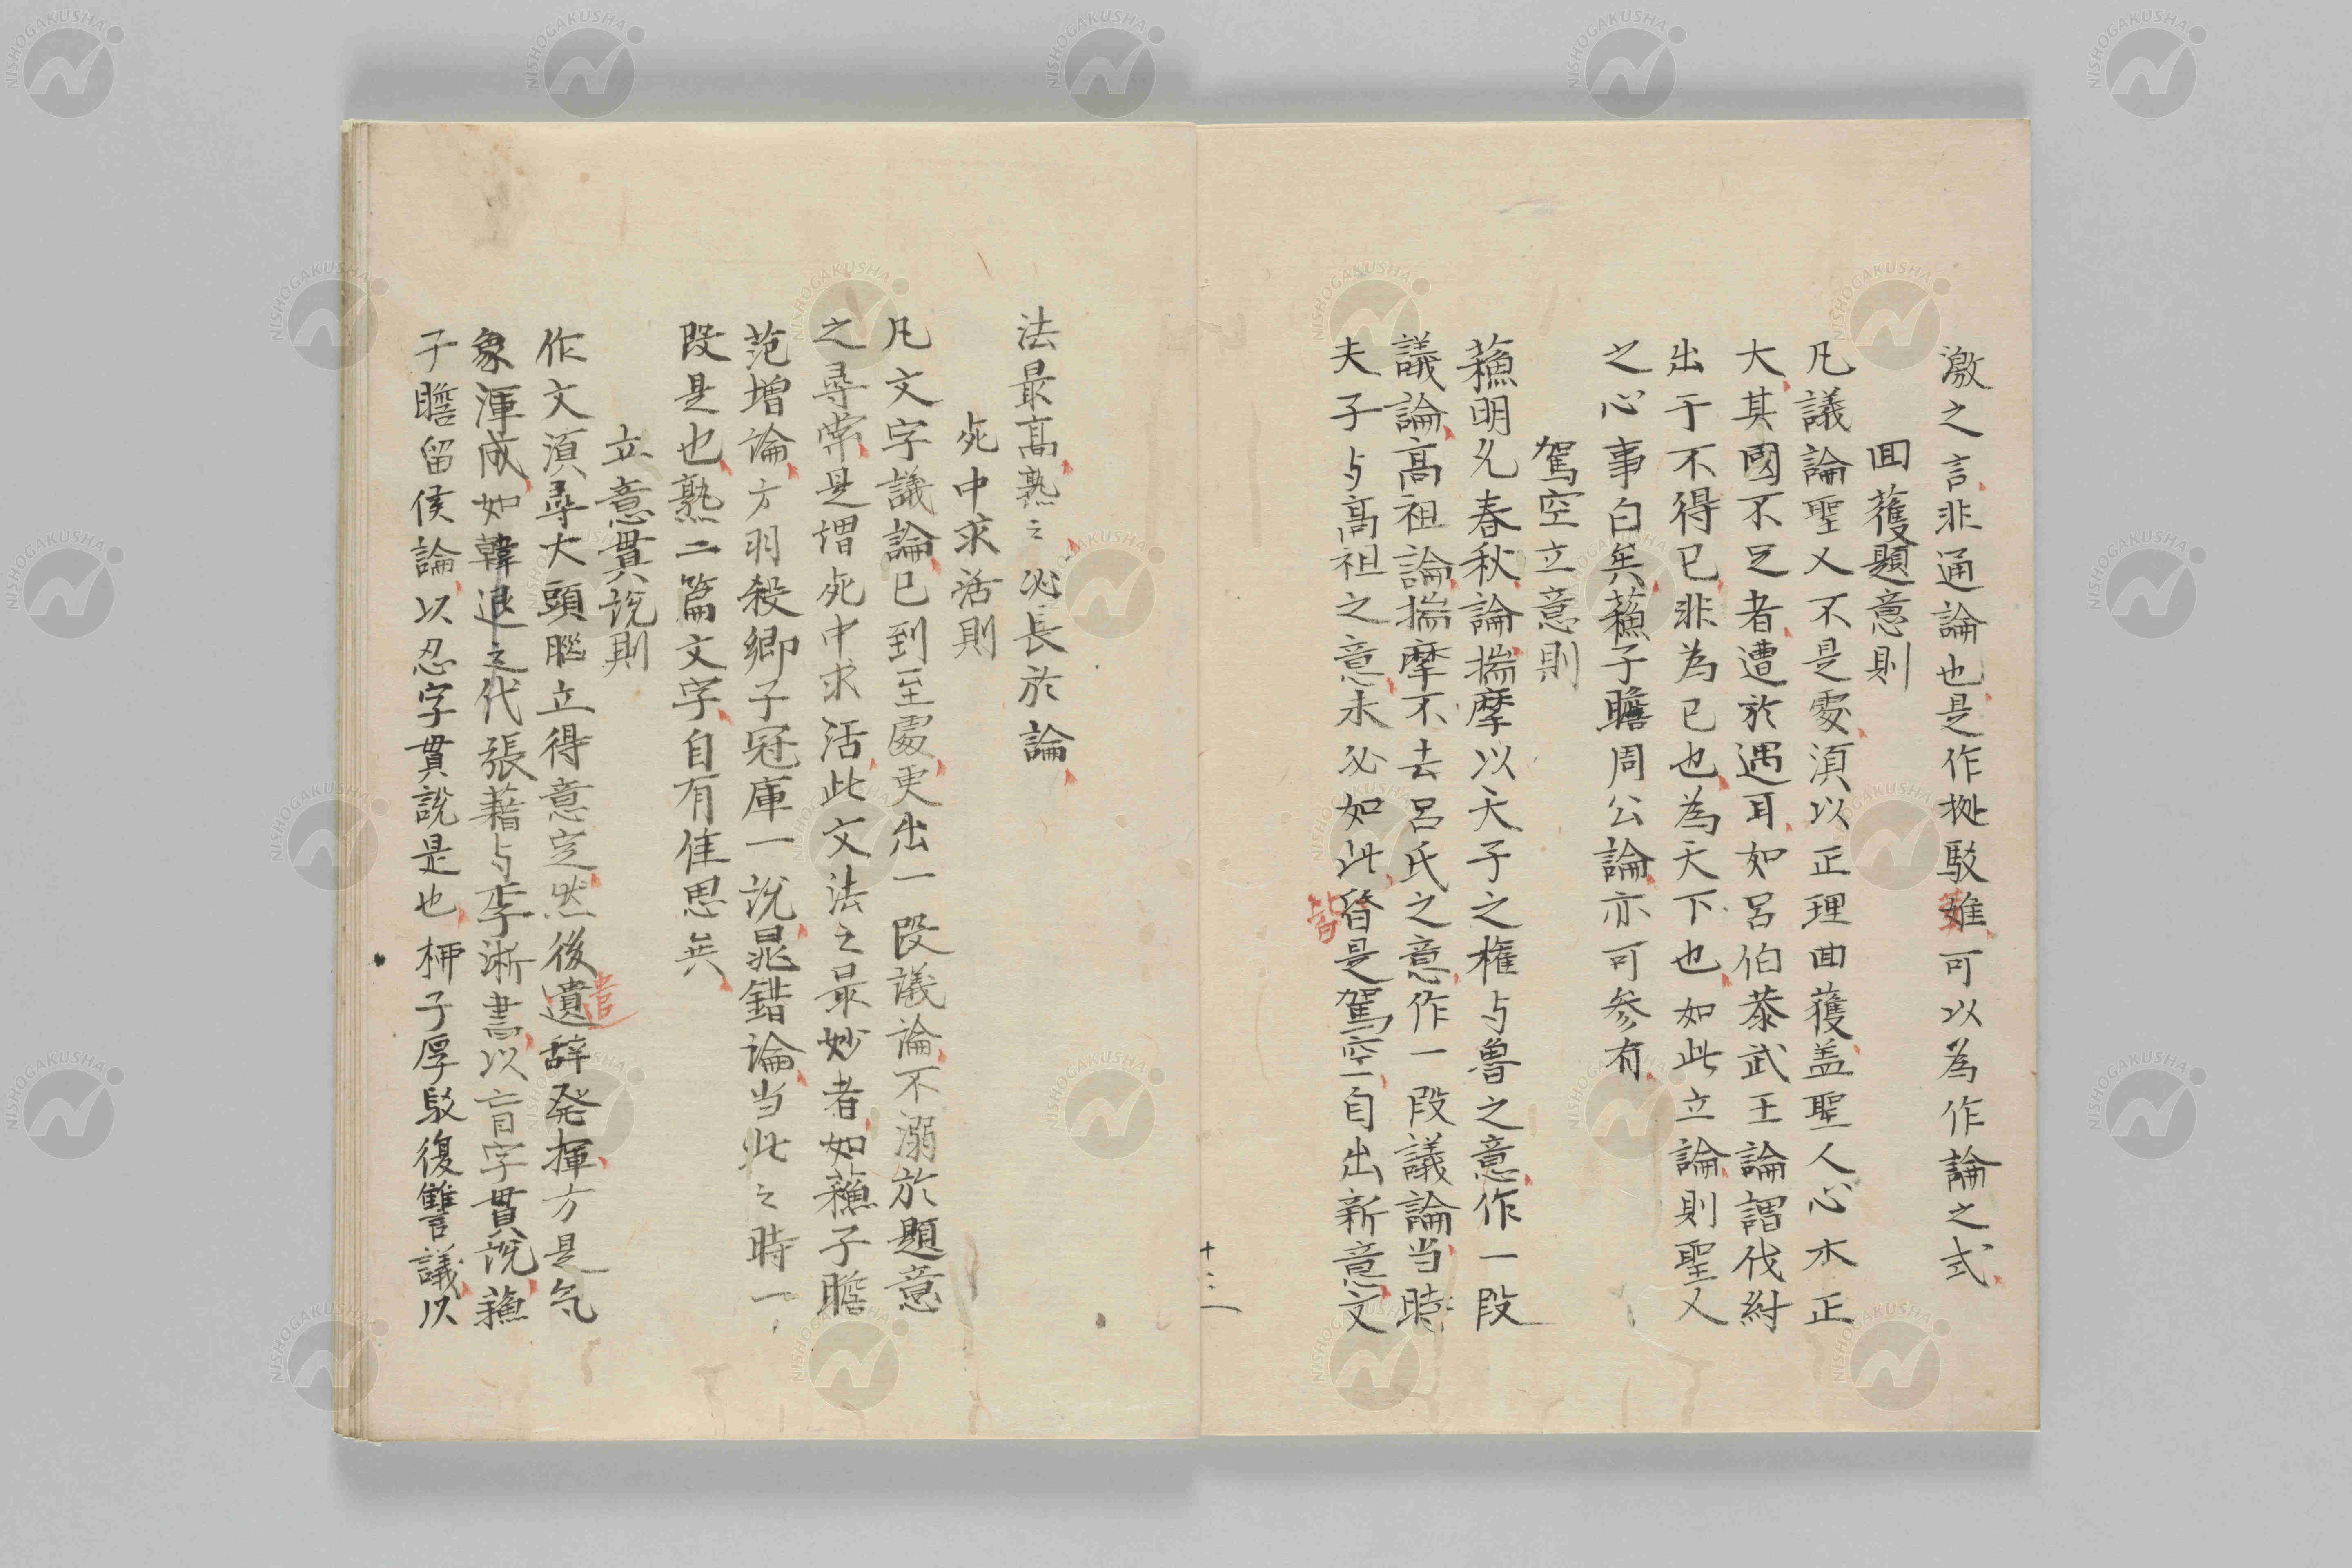 激之言非通論也是作拠駁雖可以為作論之式
回護題意則
凡議論聖人不是處須以正理回護盖聖人心术正
大其國不足者遭於遇耳如呂伯恭武王論謂伐紂
出于不得已非為已也為天下也如此立論則聖人
之心事白矣蘓子瞻周公論亦可参有
駕空立意則
蘓明允春秋論揣摩以天子之権与魯之意作一段
議論高祖論揣摩不去呂氏之意作一段議論当時
夫子与高祖之意未必如此皆是駕空自出新意文
皆
十三
法最高熟之必長於論
死中求活則
凡文字議論已到至處更出一段議論不溺於題意
之尋常是謂死中求活此文法之最妙者如蘓子瞻
范增論方羽殺卿子冠庫一說晁錯論当此之時一
段是也熟二篇文字自有佳思矣
立意貫說則
作文須尋大頭腦立得意定然後遺辞発揮方是气
遣
象渾成如韓退之代張藉与李淅書以盲字貫說蘓
子瞻留侯論以忍字貫說是也柳子厚駁復讐議以
NISHOGAKUSHA